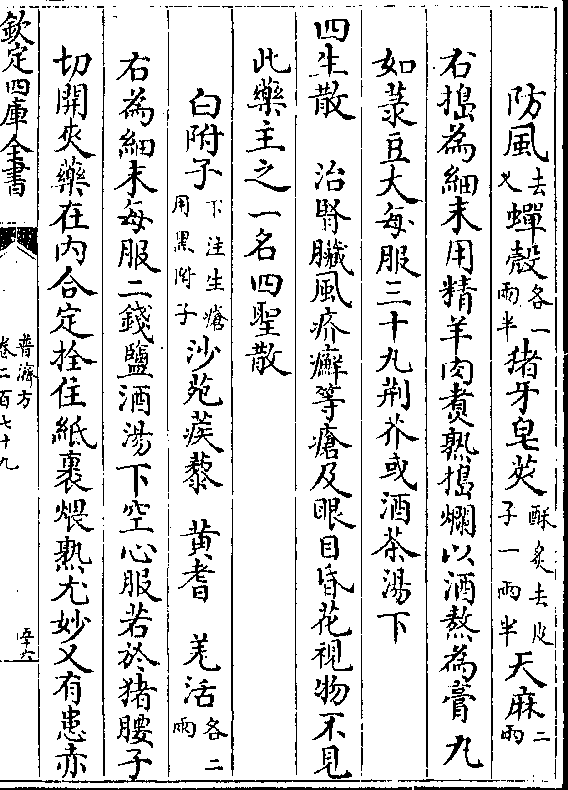 防風去叉蟬殼各一兩半猪牙皂莢酥炙去皮子一兩半天麻二兩
右搗為細末用精羊肉煑熟搗爛以酒熬為膏丸
如菉豆大每服三十丸荆芥或酒茶湯下
四生散　治腎臓風疥癬等瘡及眼目昏花視物不見
此藥主之一名四聖散
白附子下注生瘡用黒附子沙苑蒺藜　黄耆　羌活各二兩
右為細末每服二錢鹽酒湯下空心服若於猪腰子
切開夾藥在内合定拴住紙裏煨熟尤妙又有患赤
欽定四庫全書
普濟方
卷二百七十九
五十六